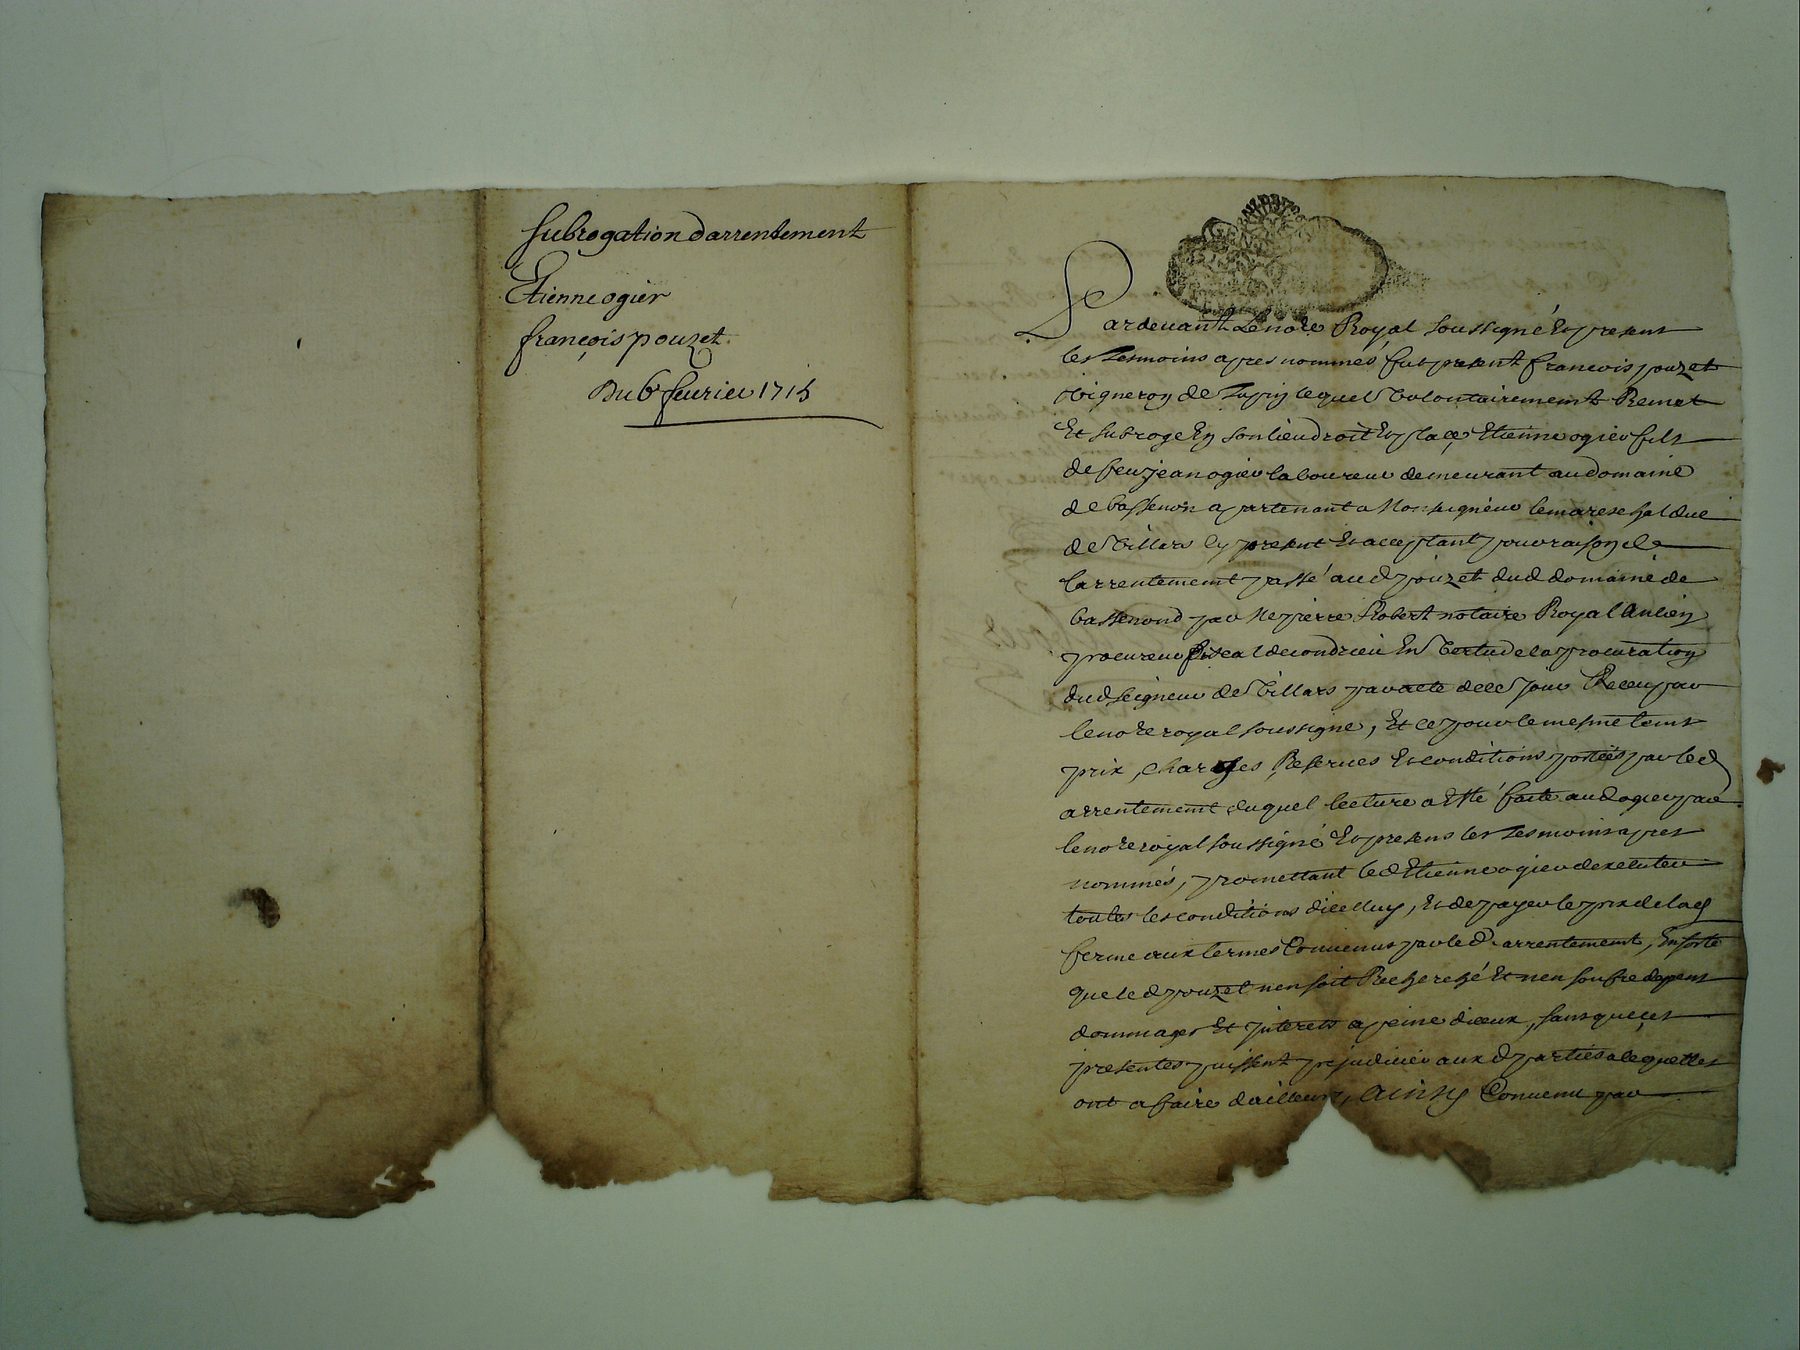 Subrogation darrentement
Etienne ogier
françois pouzet
Du 6 feurier 1715
Pardeuant Le no.re Royal soussigné Et present
les tesmoins apres nommés, fut present françois pouzet
vigneron de lequel volontairement Remet
Et subroge En son lieu droit Et place, Etienne ogier fils
de feu jean ogier laboureur demeurant au domaine
de bassenon apartenant a Monseigneur le mareschal duc
de Villars Cy present Et acceptant pour raison de
larrentement passé aud pouzet dud domaine de
bassenond par Me pierre Robert notaire Royal Ancien
procureur fiscal de condrieu En Vertu de la procuration
dud seigneur de Villars par acte de ce jour Receu par
le no.re royal soussigné, Et ce pour le mesme temps
prix, charges Reserues Et conditions portées par led
arrentement duquel lecture a Esté faite aud ogier par
le no.re royal soussigné Et presens les tesmoins apres
nommés, promettant led Etienne ogier dexecuter
toutes les conditions dicelluy, Et de payer le prix de lad
ferme aux termes Conuenus par led arrentement, En sorte
que led pouzet nen soit Recherché Et nen soufre depens
dommages Et interets a peine diceux, sans que ces
presentes puissent prejudicier aux d parties a lequelles
ont a faire dailleurs, Ainsy Conuenu par